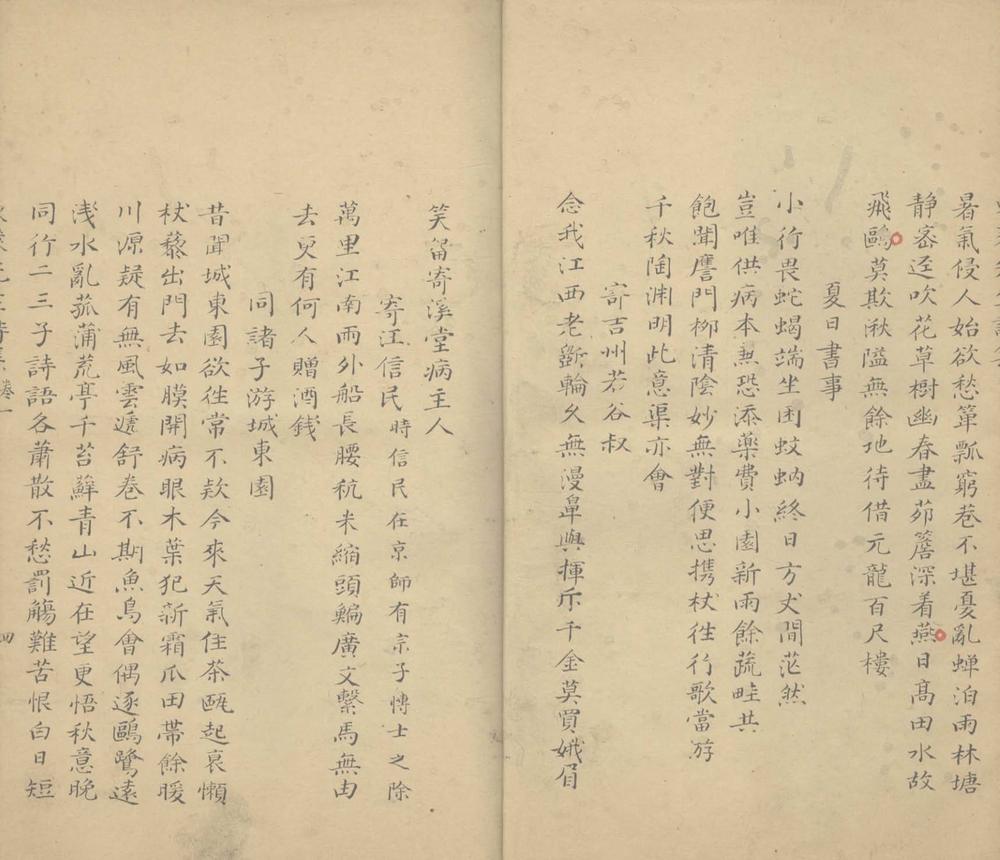 暑氣侵人始欲愁簞瓢窮巷不堪憂亂蟬泊雨林塘
静密逕吹花草樹幽春盡茆簷深着燕日髙田水故
飛鷗莫欺湫隘無餘地待借元龍百尺樓
夏日書事
小行畏蛇蝎端坐困蚊蚋終日方丈間茫然
豈唯供病本兼恐添藥費小園新雨餘蔬畦共
飽聞譍門柳清陰妙無對便思携杖徃行歌當游
千秋陶淵明此意渠亦會
寄吉州若谷叔
念我江西老斵輪久無漫鼻與揮斤千金莫買娥眉
笑留寄溪堂病主人
寄汪信民時信民在京師有京子愽士之除
萬里江南雨外船長腰秔米縮頭鯿廣文繫馬無由
去更有何人贈酒錢
同諸子游城東園
昔聞城東園欲徃常不欵今來天氣住茶甌起衰懶
杖藜出門去如膜開病眼木葉犯新霜瓜田帯餘暖
川源疑有無風雲遞舒卷不期魚鳥會偶逐鷗鷺遠
浅水亂菰蒲荒亭千苔蘚青山近在望更悟秋意晚
同行二三子詩語各蕭散不愁罰觴難苦恨白日短
卷一
四